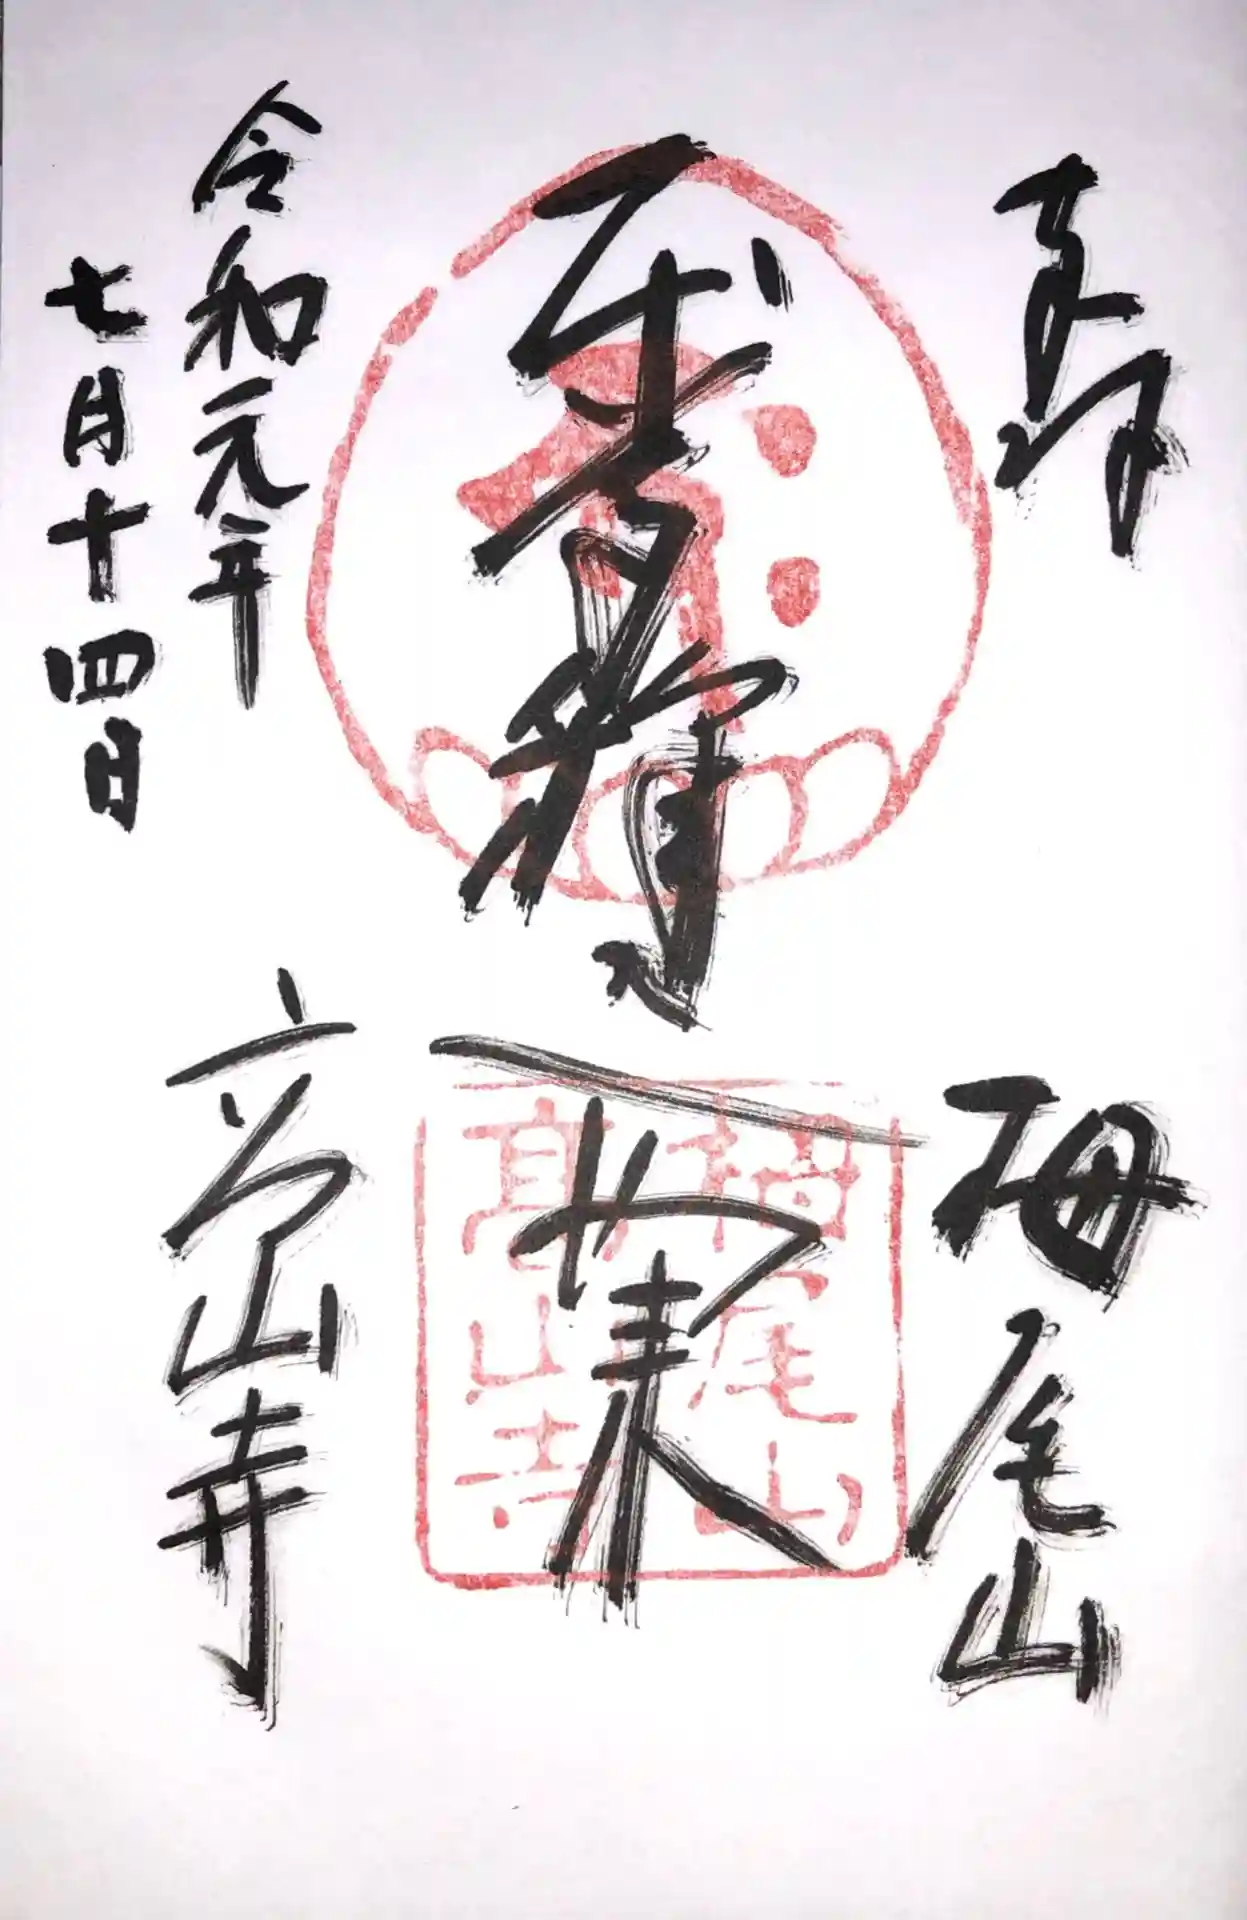 奉拝
栂尾山
如来
令和元年
七月十四日
高山寺
栂尾山
高山寺